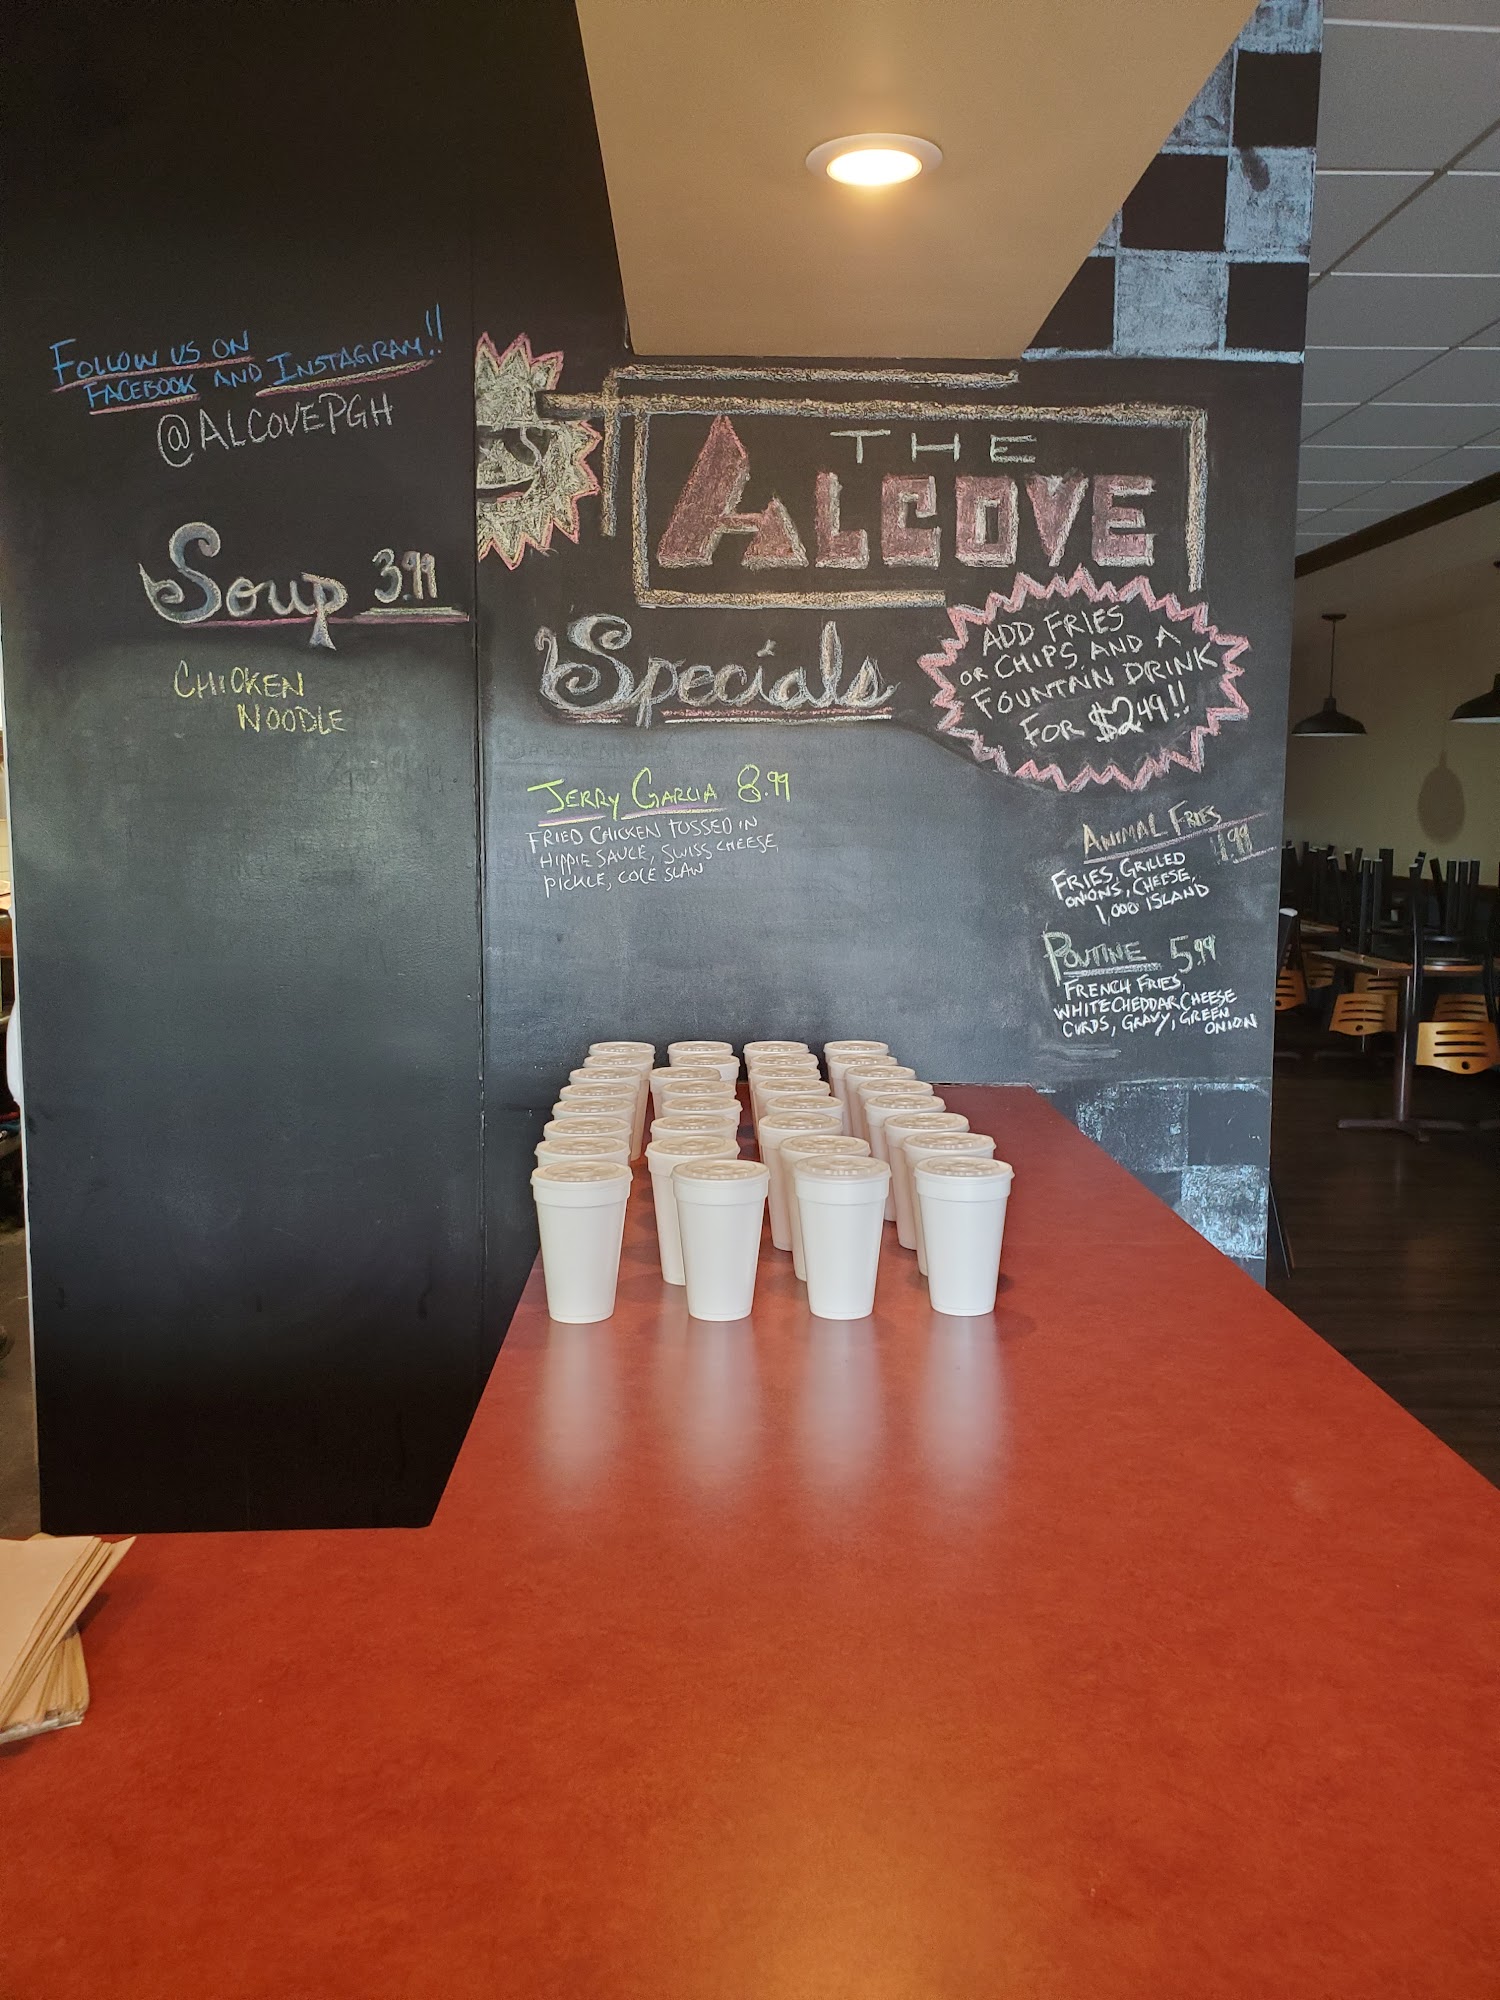 FOLLOW US ON
FACEBOOK AND INSTAGRAM!!
@ALCOVEPGH
Soup 3.99
CHICKEN
NOODLE
THE
ALCOVE
Specials
ADD FRIES
OR CHIPS, AND A
FOUNTAIN DRINK
FOR $2.49!!
JERRY GARCIA 8.99
FRIED CHICKEN TOSSED IN
HIPPIE SAUCE, SWISS CHEESE,
PICKLE, COLE SLAW
ANIMAL FRIES
FRIES, GRILLED
ONIONS, CHEESE,
1,000 ISLAND
POUTINE 5.99
FRENCH FRIES,
WHITE CHEDDAR CHEESE
CURDS, GRAVY, GREEN
ONION